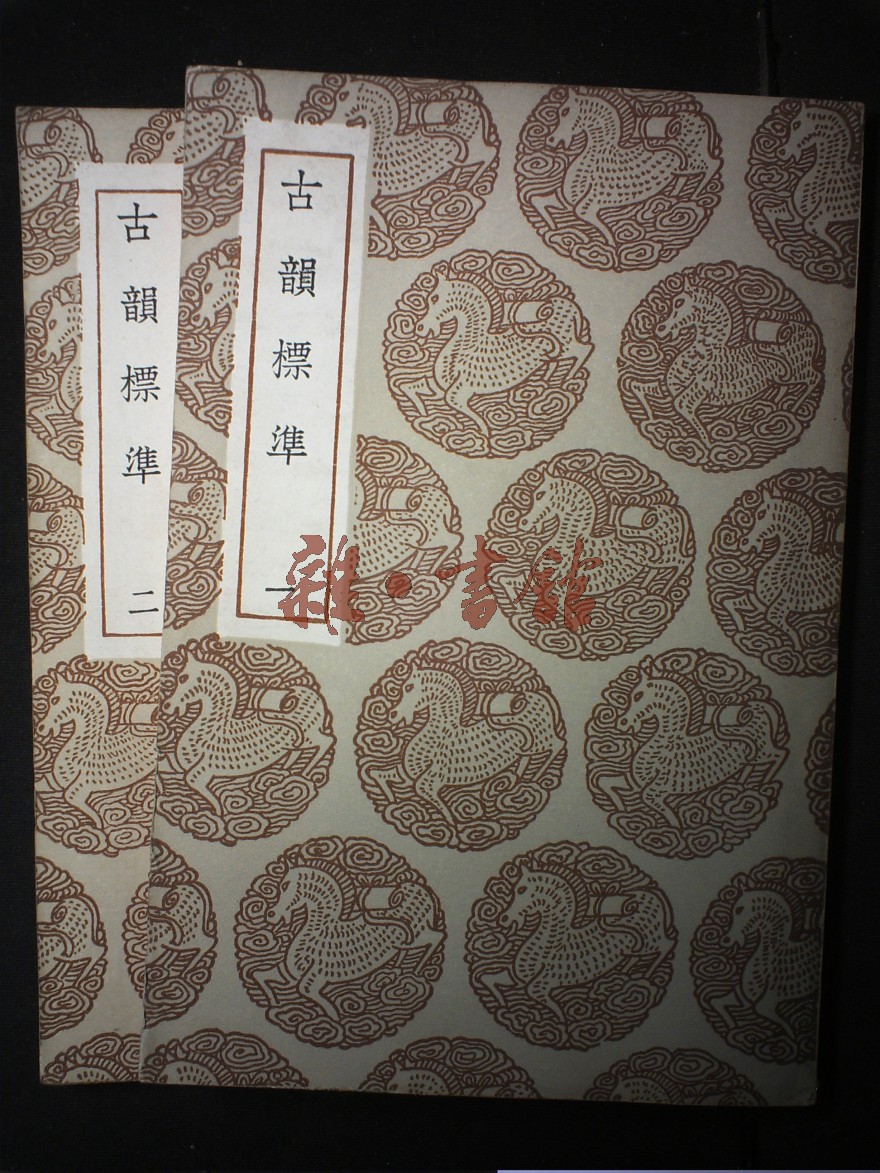 古韻標準
一
古韻標準
二
雜·書館